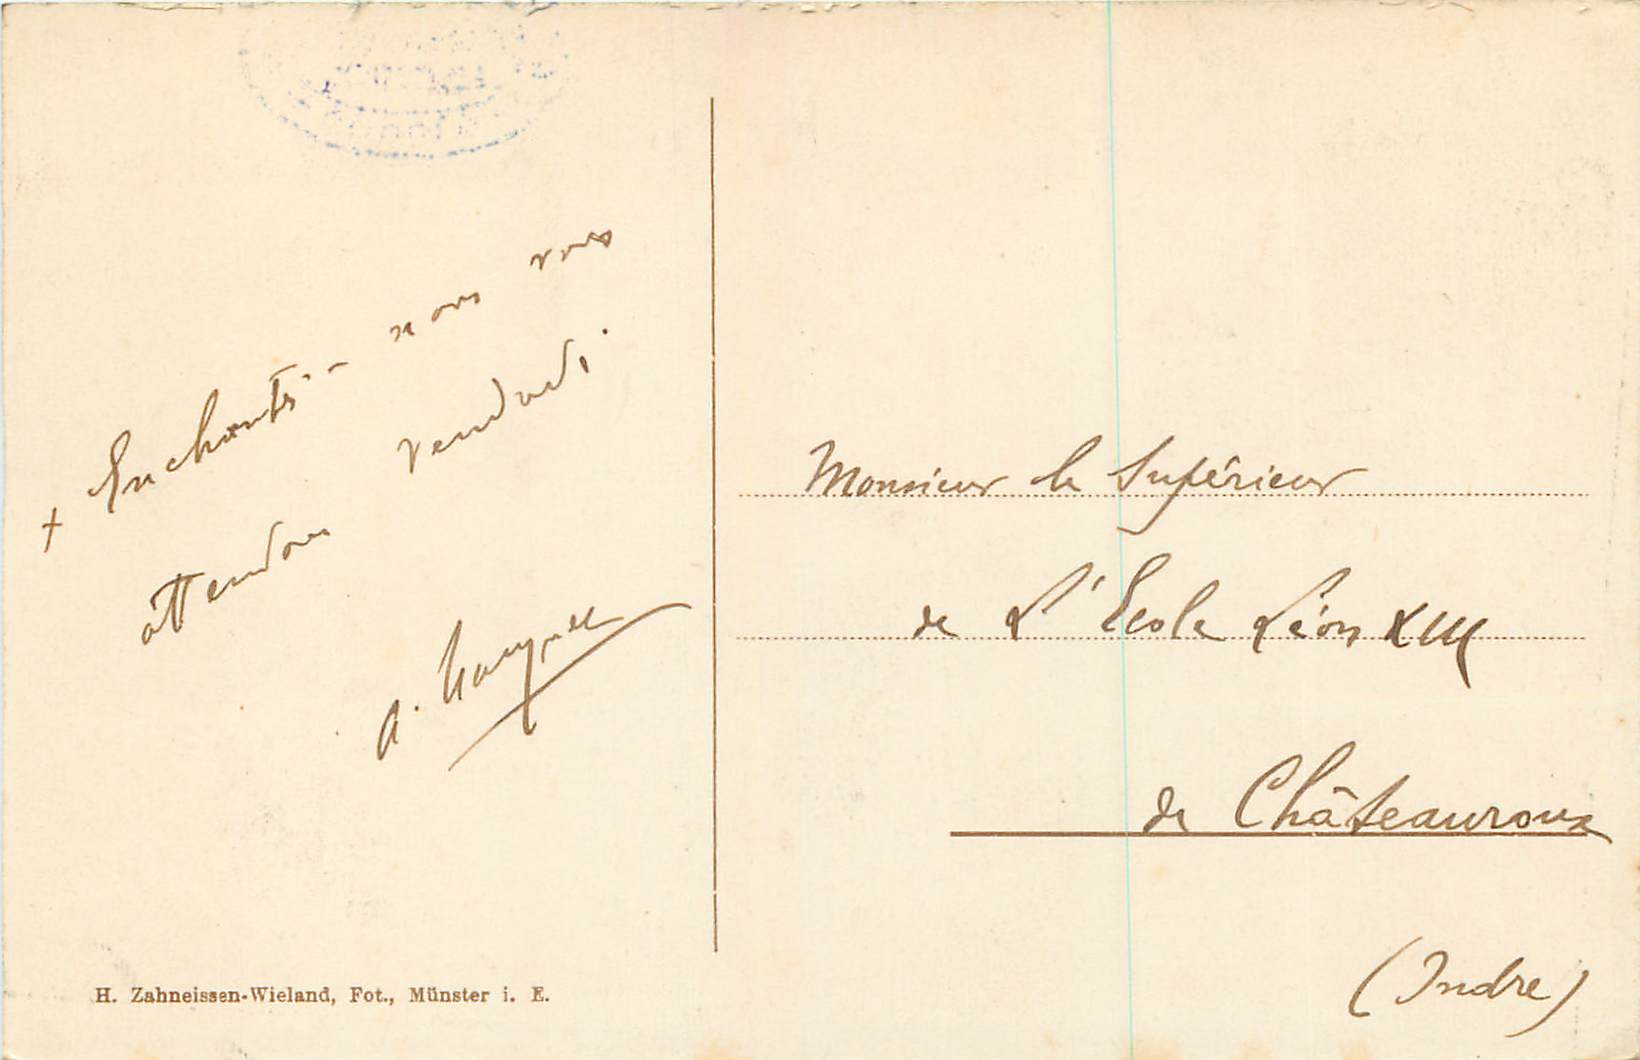 + Enchanté - nous vous
attendons vendredi.
A.
Monsieur le Supérieur
de L'Ecole Léon XIII
de Châteauroux
(Indre)
H. Zahneissen-Wieland, Fot., Münster i. E.